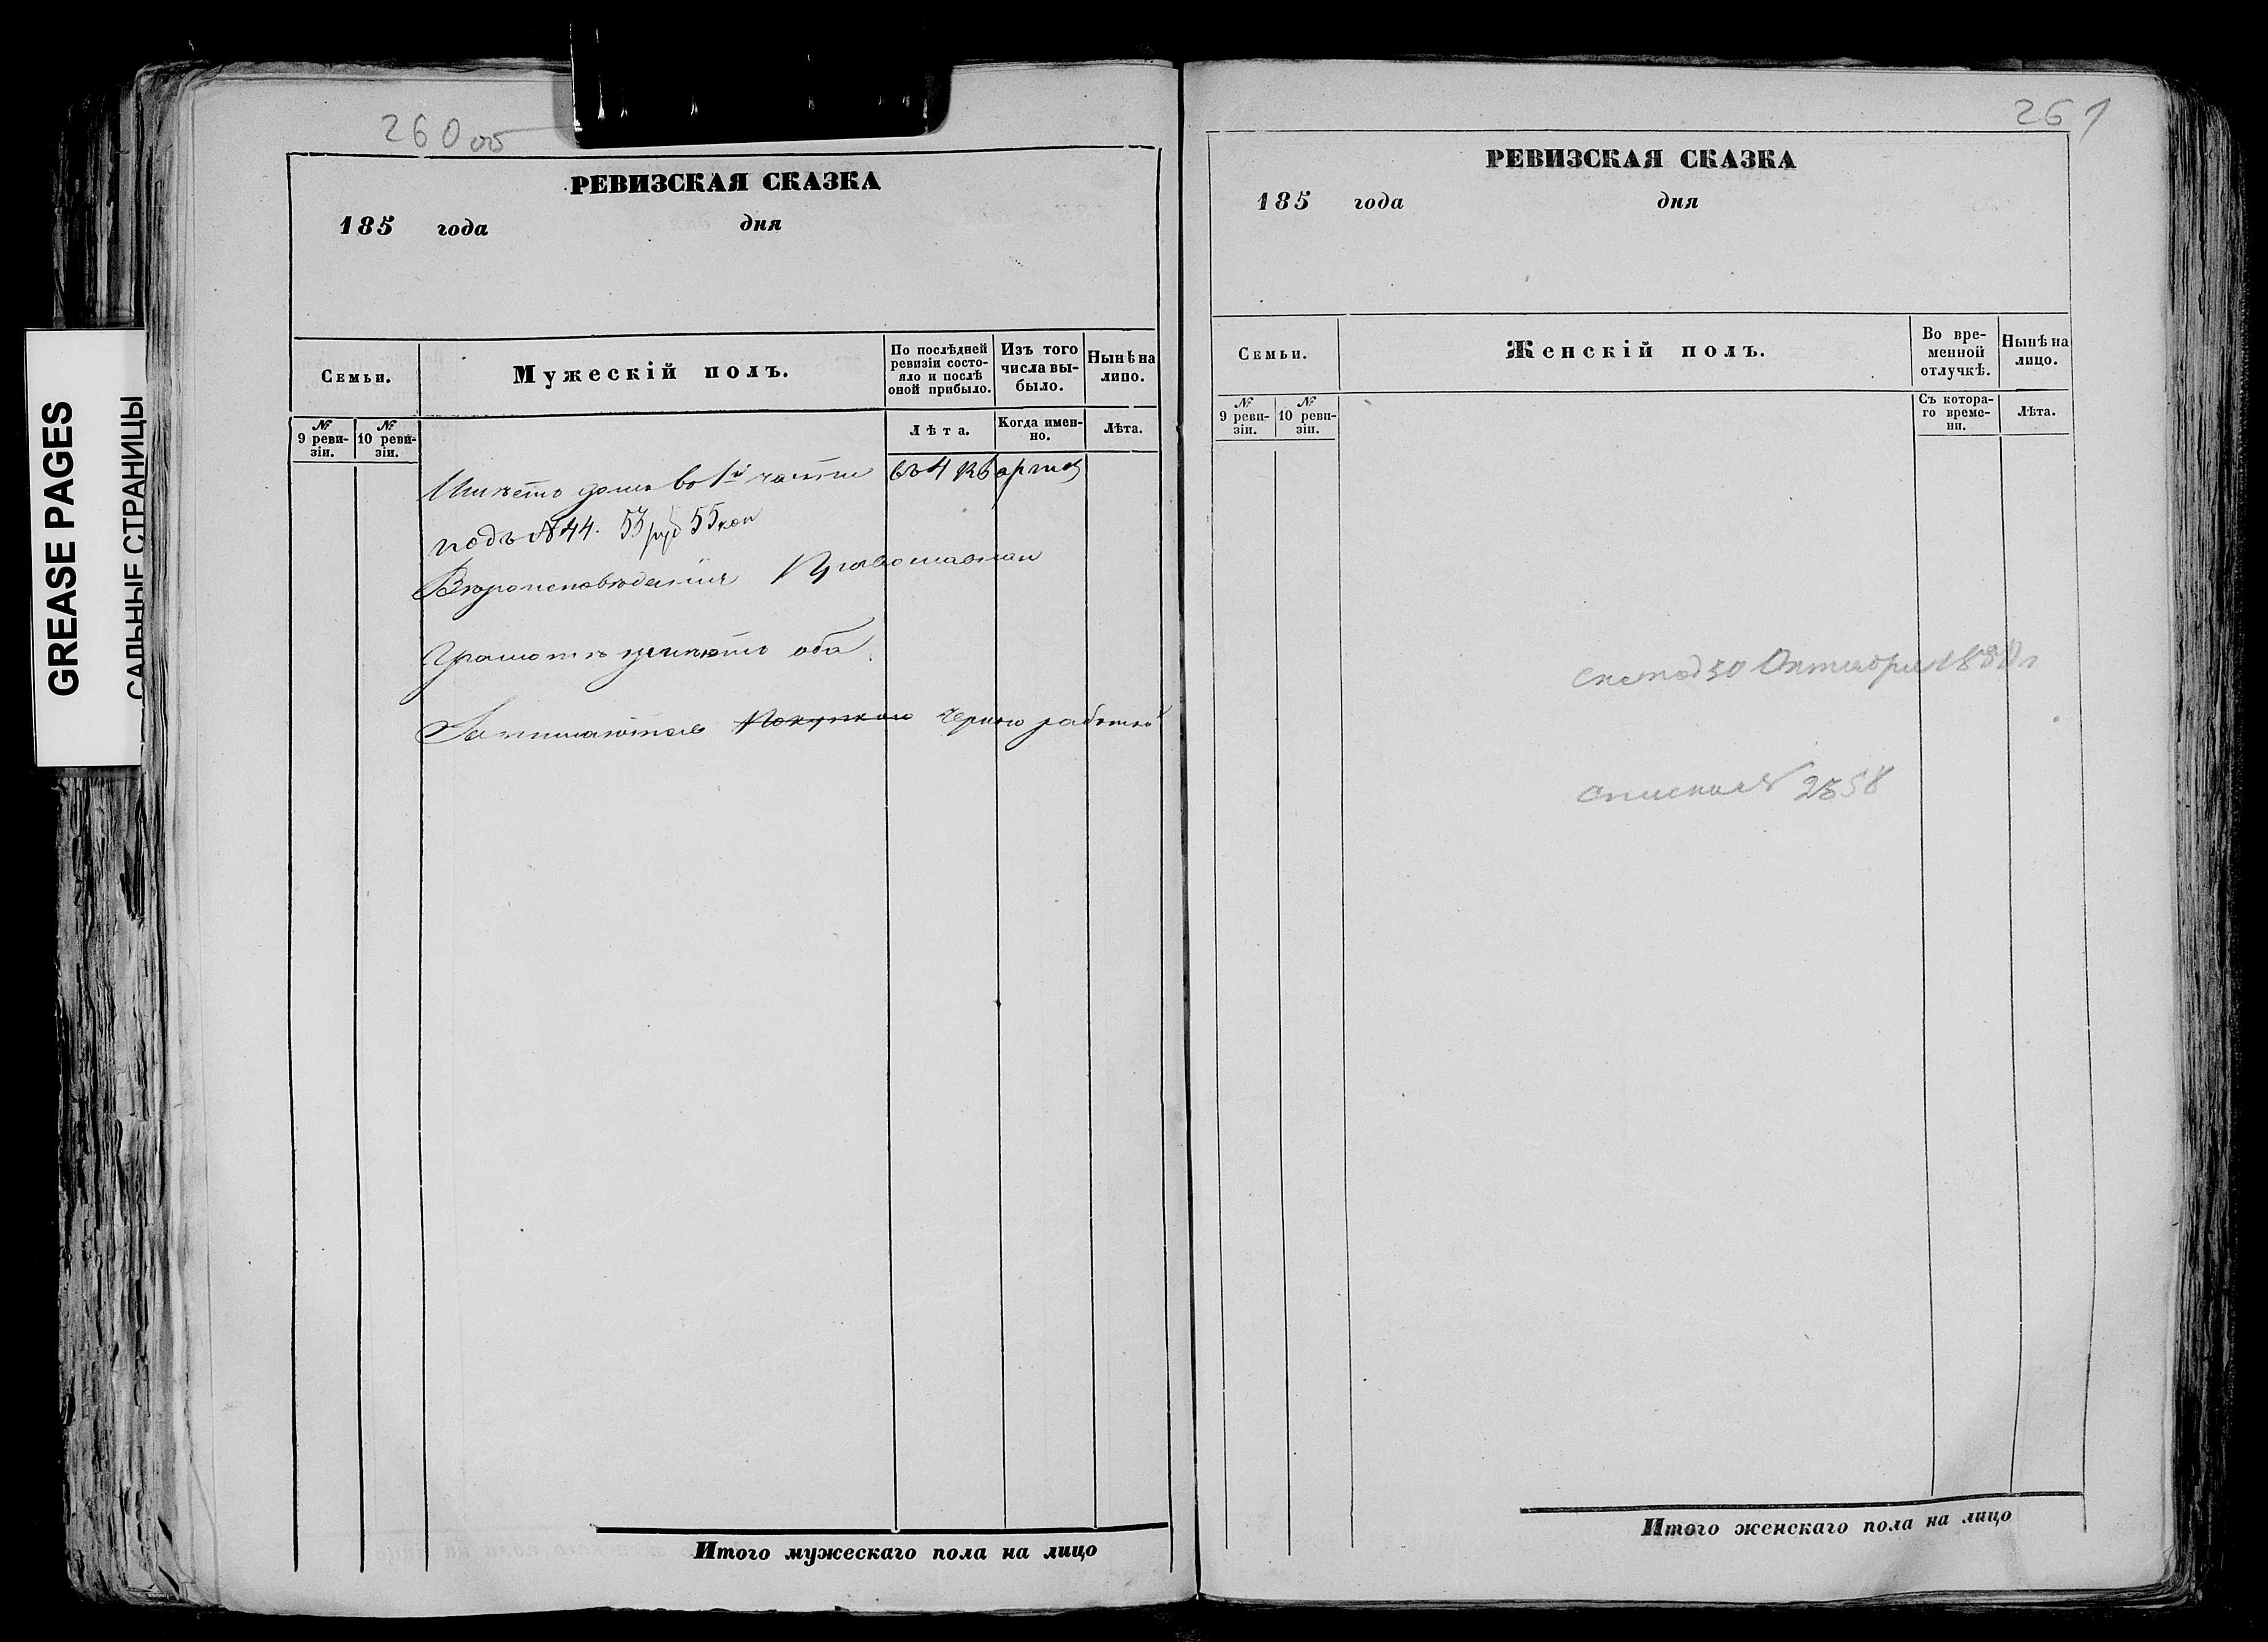 GREASE PAGES
САЛЬНЫЕ СТРАНИЦЫ
260 об
РЕВИЗСКАЯ СКАЗКА
185 года дня
Семьи.
Мужескій полъ.
По послѣдней ревизіи состояло и послѣ оной прибыло.
Изъ того числа выбыло.
Нынѣ на лицо.
№ 9 ревизіи.
№ 10 ревизіи.
Лѣта.
Когда именно.
Лѣта.
Имѣетъ домъ во 1й части въ 4 кварт
подъ № 44. 53 руб 55 коп
Вѣроисповѣданія Православнаго
Грамотѣ умѣютъ оба
Занимаются чорною работой
Итого мужескаго пола на лицо
261
РЕВИЗСКАЯ СКАЗКА
185 года дня
Семьи.
Женскій полъ.
Во временной отлучкѣ.
Нынѣ на лицо.
№ 9 ревизіи.
№ 10 ревизіи.
Съ котораго времени.
Лѣта.
30 Октября
2358
Итого женскаго пола на лицо